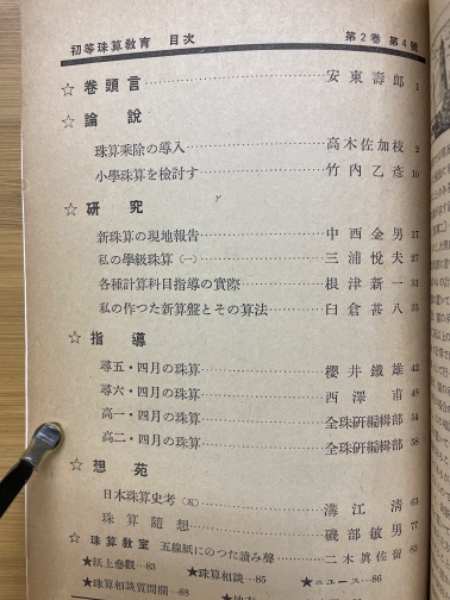 初等珠算教育 目次 第2卷 第4號
☆ 卷頭言 安東壽郎 1
☆ 論說
珠算乘除の導入 高木佐加枝 2
小學珠算を檢討す 竹內乙彥 10
☆ 研究
新珠算の現地報告 中西金男 17
私の學級珠算(一) 三浦悅夫 27
各種計算科目指導の實際 根津新一 31
私の作つた新算盤とその算法 臼倉甚八 35
☆ 指導
尋五・四月の珠算 櫻井鐵雄 42
尋六・四月の珠算 西澤甫 48
高一・四月の珠算 全珠硏編輯部 54
高二・四月の珠算 全珠硏編輯部 58
☆ 想苑
日本珠算史考(五) 溝江淸 63
珠算隨想 磯部敏男 77
☆ 珠算教室 五線紙にのつた讀み聲 二木眞佐留 85
★紙上參觀…83 ★珠算相談…85 ★ニュース…86
★珠算相談質問欄…88